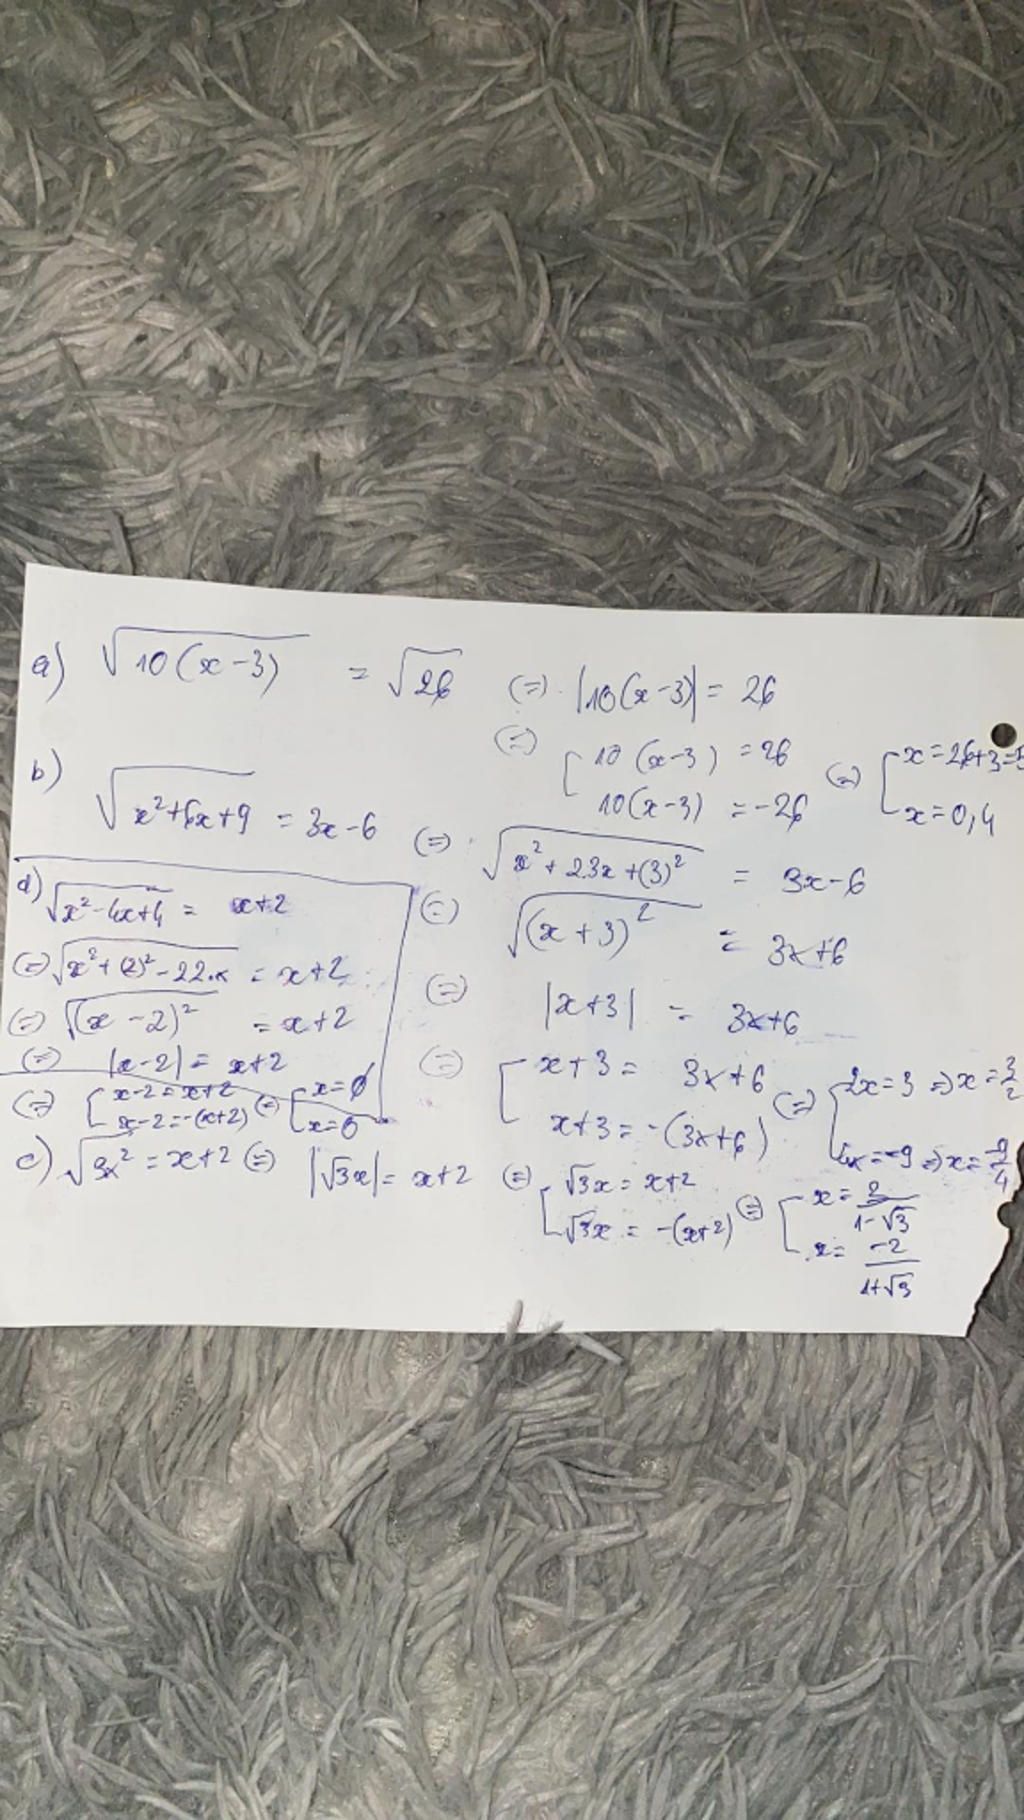 a) √10(x-3) = √26 (=) |10(x-3)| = 26
(=) [ 10(x-3) = 26
10(x-3) = -26
(=) [ x = 26+3=5
x = 0,4
b) √x²+6x+9 = 3x-6 (=) √x²+2.3x+(3)² = 3x-6
(=) √(x+3)² = 3x+6
(=) |x+3| = 3x+6
(=) [ x+3 = 3x+6
x+3 = -(3x+6)
(=) [ 2x=3 =) x = 3/2
4x=-9 =) x = -9/4
d) √x²-4x+4 = x+2
(=) √x²+(2)²-22.x = x+2
(=) √(x-2)² = x+2
(=) |x-2| = x+2
(=) [ x-2 = x+2
x-2 = -(x+2)
(=) [ x=∅
x=0
c) √3x² = x+2 (=) |√3x| = x+2 (=) [ √3x = x+2
√3x = -(x+2)
(=) [ x = 2/1-√3
x = -2/1+√3